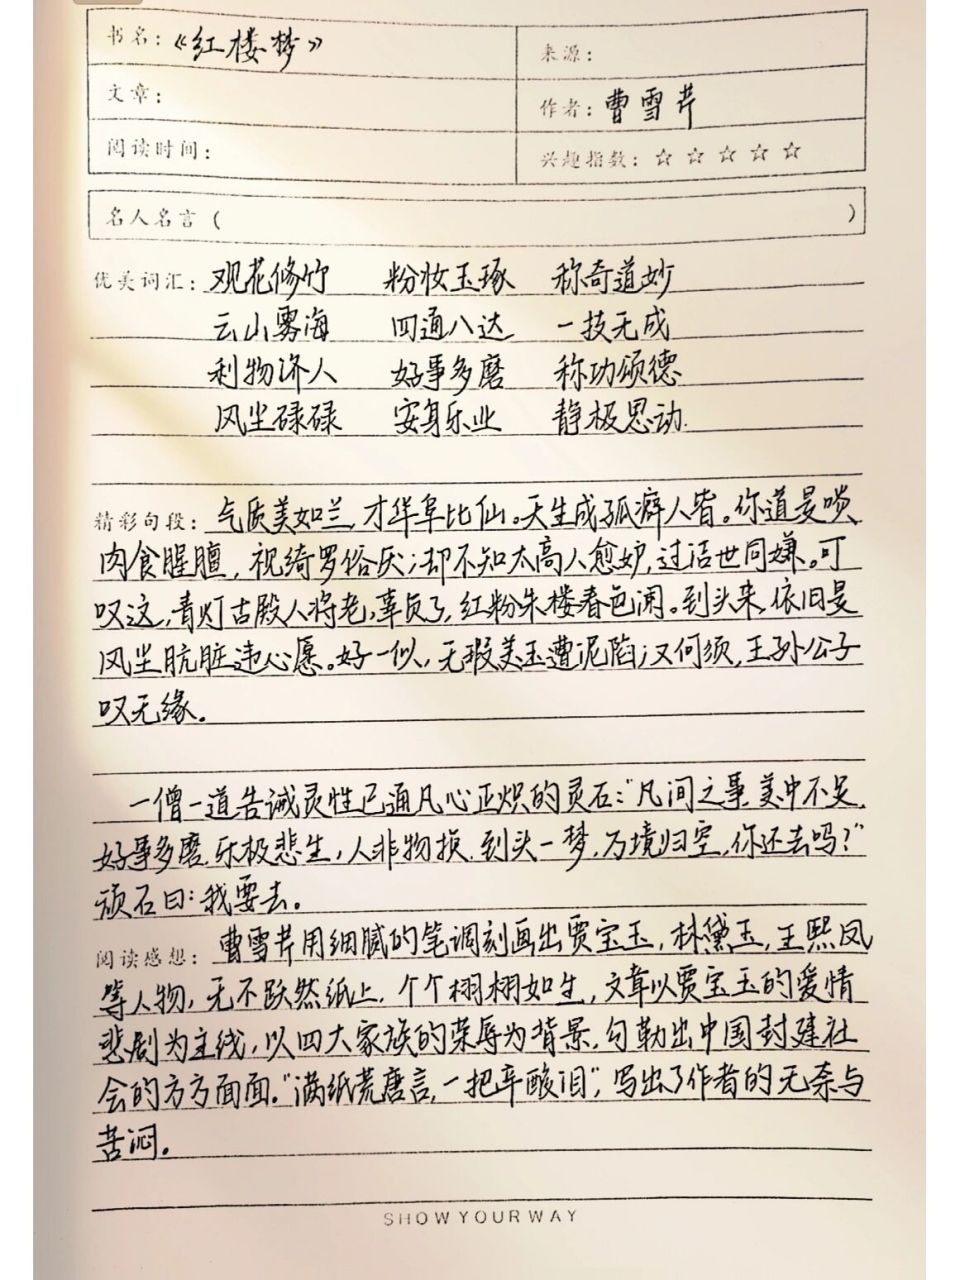 书名：《红楼梦》 来源：
文章： 作者：曹雪芹
阅读时间： 兴趣指数：☆ ☆ ☆ ☆ ☆
名人名言（ ）
优美词汇：观花修竹 粉妆玉琢 称奇道妙
云山雾海 四通八达 一技无成
利物济人 好事多磨 称功颂德
风尘碌碌 安身乐业 静极思动.
精彩句段：气质美如兰,才华阜比仙。天生成孤癖人皆。你道是啖
肉食腥膻，视绮罗俗厌；却不知太高人愈妒,过洁世同嫌。可
叹这,青灯古殿人将老,辜负了,红粉朱楼春色阑。到头来,依旧是
风尘肮脏违心愿。好一似,无瑕美玉遭泥陷;又何须,王孙公子
叹无缘。
一僧一道告诫灵性已通凡心正炽的灵石:“凡间之事,美中不足,
好事多磨,乐极悲生,人非物换,到头一梦,万境归空,你还去吗?”
顽石曰:我要去。
阅读感想：曹雪芹用细腻的笔调刻画出贾宝玉,林黛玉,王熙凤
等人物,无不跃然纸上,个个栩栩如生,文章以贾宝玉的爱情
悲剧为主线,以四大家族的荣辱为背景,勾勒出中国封建社
会的方方面面.“满纸荒唐言,一把辛酸泪”,写出了作者的无奈与
苦闷。
SHOW YOUR WAY